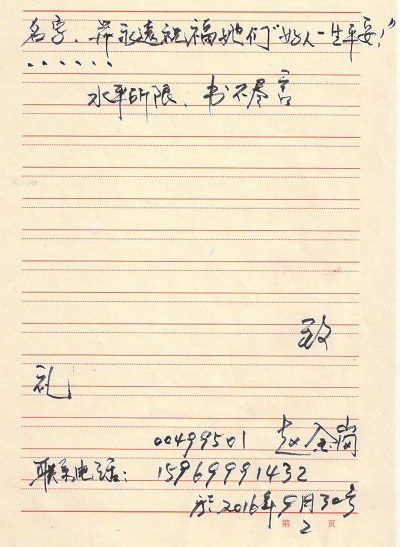 名字，并永远祝福她们“好人一生平安！”
......
水平所限，书不尽言
致
礼
00499501 赵金岗
联系电话：15969991432
于2016年9月30号
第 2 页